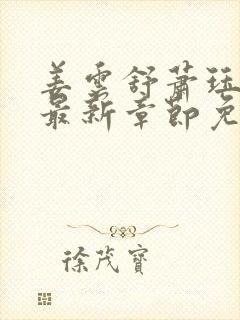 姜雲舒蕭珏
最新章節免
徐茂寶